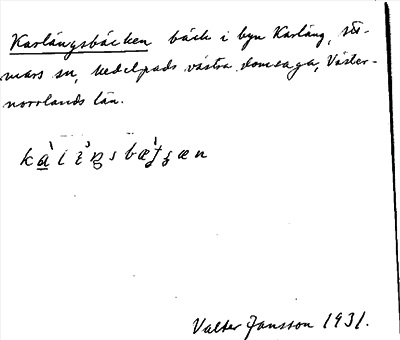 Karlängsbäcken bäck i byn Karläng, Stö-
mars sn, Medelpads västra domsaga, Väster-
norrlands län.
Valter Jansson 1931.